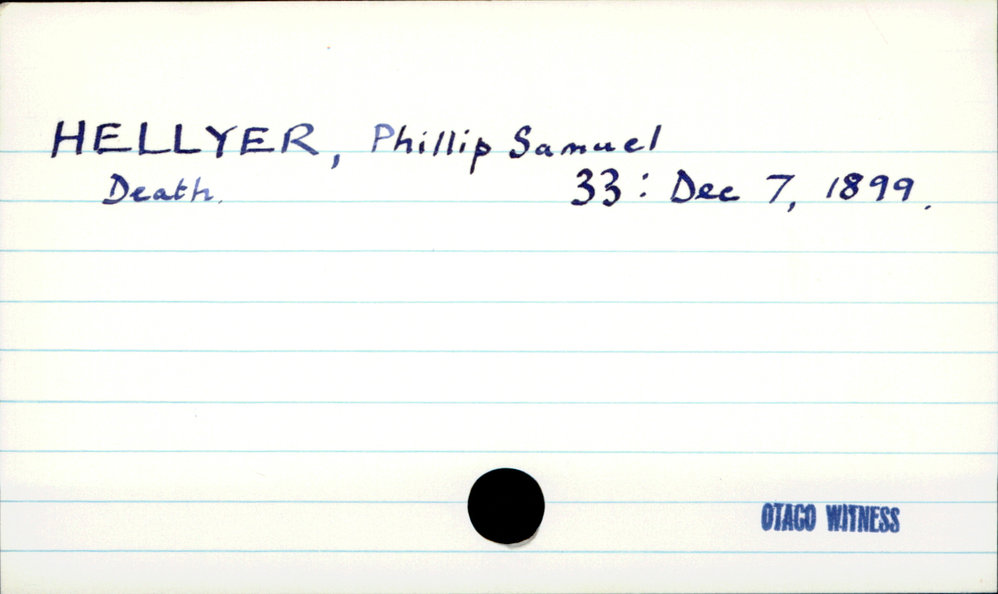 HELLYER, Phillip Samuel
Death. 33: Dec 7, 1899.
OTAGO WITNESS